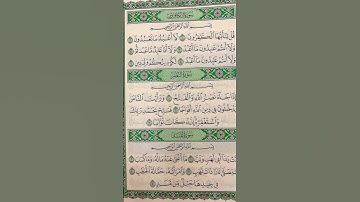 سورة الكافرون
بسم الله الرحمن الرحيم
قل يٰأيها الكٰفرون لا أعبد ما تعبدون
ولا أنتم عٰبدون ما أعبد ولا أنا عابد ما عبدتم
ولا أنتم عٰبدون ما أعبد لكم دينكم ولي دين
سورة النصر
بسم الله الرحمن الرحيم
إذا جاء نصر الله والفتح ورأيت الناس
يدخلون في دين الله أفواجا فسبح بحمد ربك
واستغفره إنه كان توابا
بسم الله الرحمن الرحيم
تبت يدا أبي لهب وتب ما أغنى عنه ماله وما كسب
سيصلى نارا ذات لهب وامرأته حمالة الحطب
في جيدها حبل من مسد